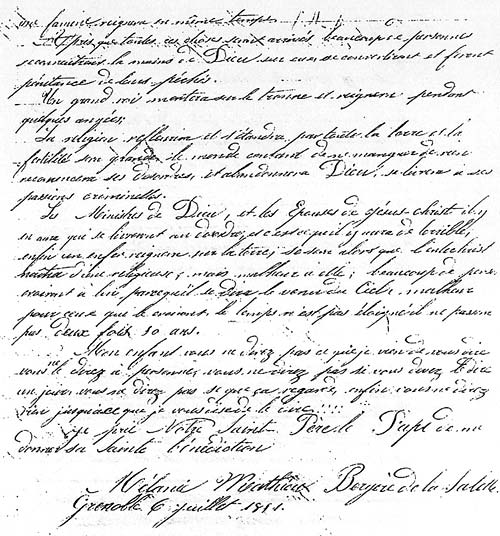 une famine reignera en même temps
Après que toutes ces choses seront arrivés beaucoup de personnes
reconnaitrons la main de Dieu sur eux se convertiront et feront
pénitence de leurs péchés.
Un grand roi montera sur le tronne et reignera pendant
quelques années;
La religion reflorira et s'étendra par toute la terre et la
fertilité sera grande, le monde content de ne manquer de rien
recommencera ses desordres, et abandonnera Dieu, se livrera à ses
passions criminelles.
Les Ministres de Dieu, et les Epouses de Jésus-Christ il y
en aura qui se livreront au desordre, et c'est ce qu'il y aura de terrible,
enfin un enfer reignera sur la terre; se sera alors que l'antechrist
naitra d'une religieuse; mais malheur a elle; beaucoup de pers
croiront à lui parcequ'il se dira le venu du Ciel, malheur
pour ceux que le croiront le temps n'est pas éloigné il ne passera
pas deux fois 50 ans.
Mon enfant vous ne direz pas ce que je vien de vous dire
vous ne le direz à personne, vous ne direz pas si vous devez le dire
un jour, vous ne direz pas se que ça regarde, enfin vous ne direz
rien jusqu'ace que je vous dise de le dire
je prie Notre Saint Père le Pape de me
donner sa Sainte bénédiction
Mélanie Matthieu Bergère de la Salette
Grenoble 6 juillet 1851.